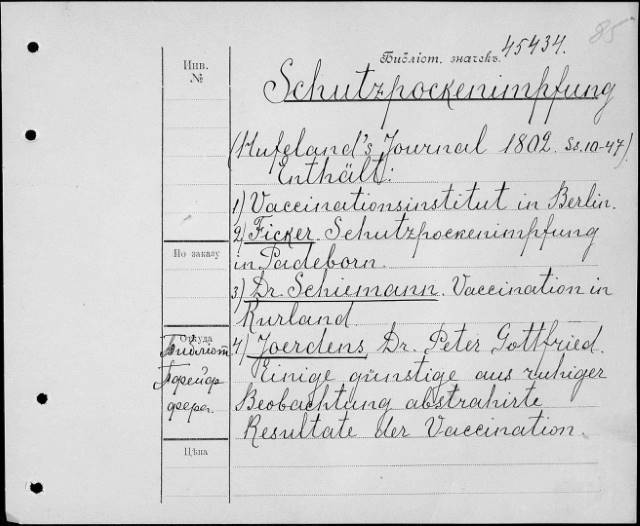 85
Библіот. значекъ. 45434.
Инв.
№
Schutzpockenimpfung
(Hufeland's Journal 1802. Ss. 10-47).
Enthält:
1) Vaccinationsinstitut in Berlin.
2) Ficker. Schutzpockenimpfung
in Padeborn.
По заказу
3) Dr. Schiemann. Vaccination in
Kurland.
Откуда
Библіот.
4) Joerdens, Dr. Peter Gottfried.
Einige günstige aus ruhiger
Beobachtung abstrahirte
Resultate der Vaccination.
Цѣна